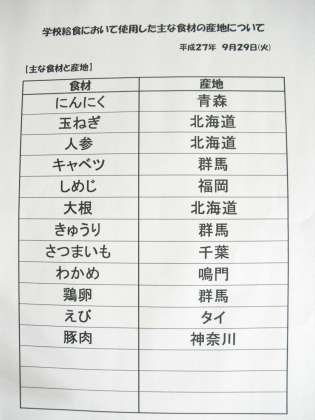 学校給食において使用した主な食材の産地について
平成27年 9月29日(火)
【主な食材と産地】
食材 産地
にんにく 青森
玉ねぎ 北海道
人参 北海道
キャベツ 群馬
しめじ 福岡
大根 北海道
きゅうり 群馬
さつまいも 千葉
わかめ 鳴門
鶏卵 群馬
えび タイ
豚肉 神奈川